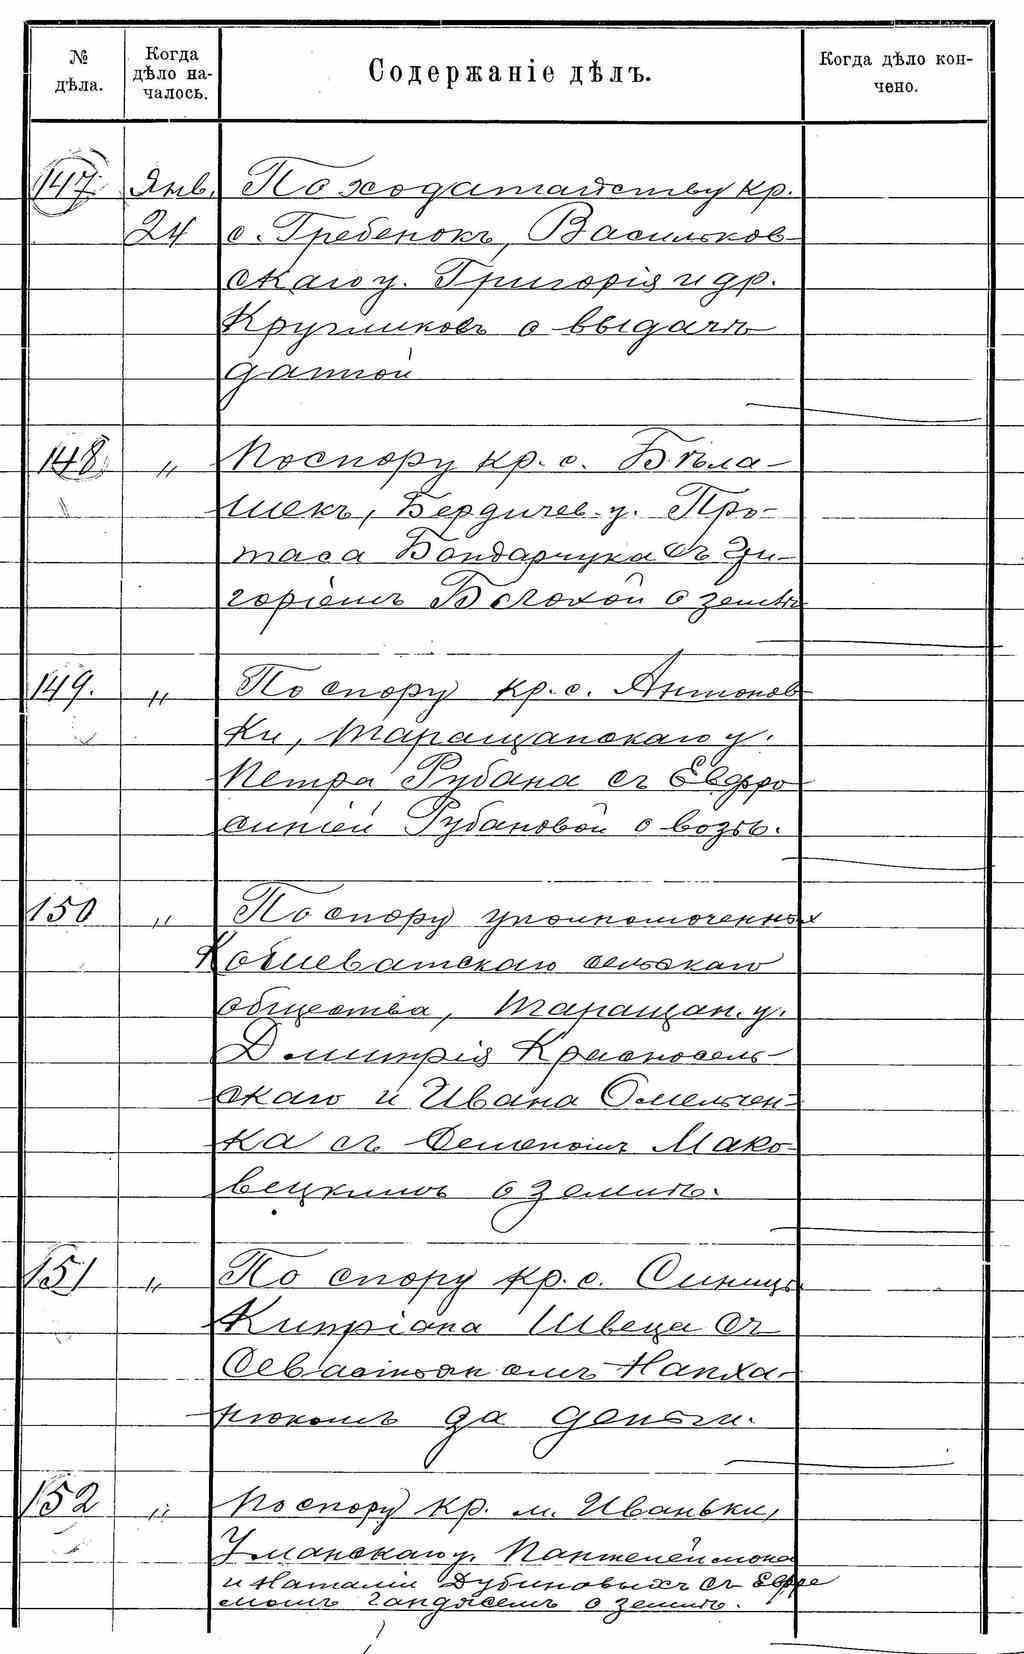 № дѣла.
Когда дѣло началось.
Содержаніе дѣлъ.
Когда дѣло кончено.
147 Янв. По ходатайству кр.
24 с. Гребенокъ, Васильков-
скаго у. Григорія и др.
Кругликовъ о выдачѣ
данной
148 " По спору кр. с. Бѣла-
шекъ, Бердичев. у. Про-
таса Бондарчука съ Гри-
горіемъ Болохой о землѣ
149. " По спору кр. с. Антонов-
ки, Таращанскаго у.
Петра Рубана съ Евфро
синіей Рубановой о возѣ.
150 " По спору уполномоченных
Кошеватскаго сельскаго
общества, Таращан. у.
Дмитрія Красносель-
скаго и Ивана Омельчен-
ка съ Семеномъ Мако-
вецкимъ о землѣ.
151 " По спору кр. с. Синицы
Кипріана Швеца съ
Севастіаномъ
за деньги.
152 " По спору кр. м. Иваньки,
Уманскаго у. Пантелеймона
и Наталіи Дубиновыхъ съ Евфре
момъ о землѣ.